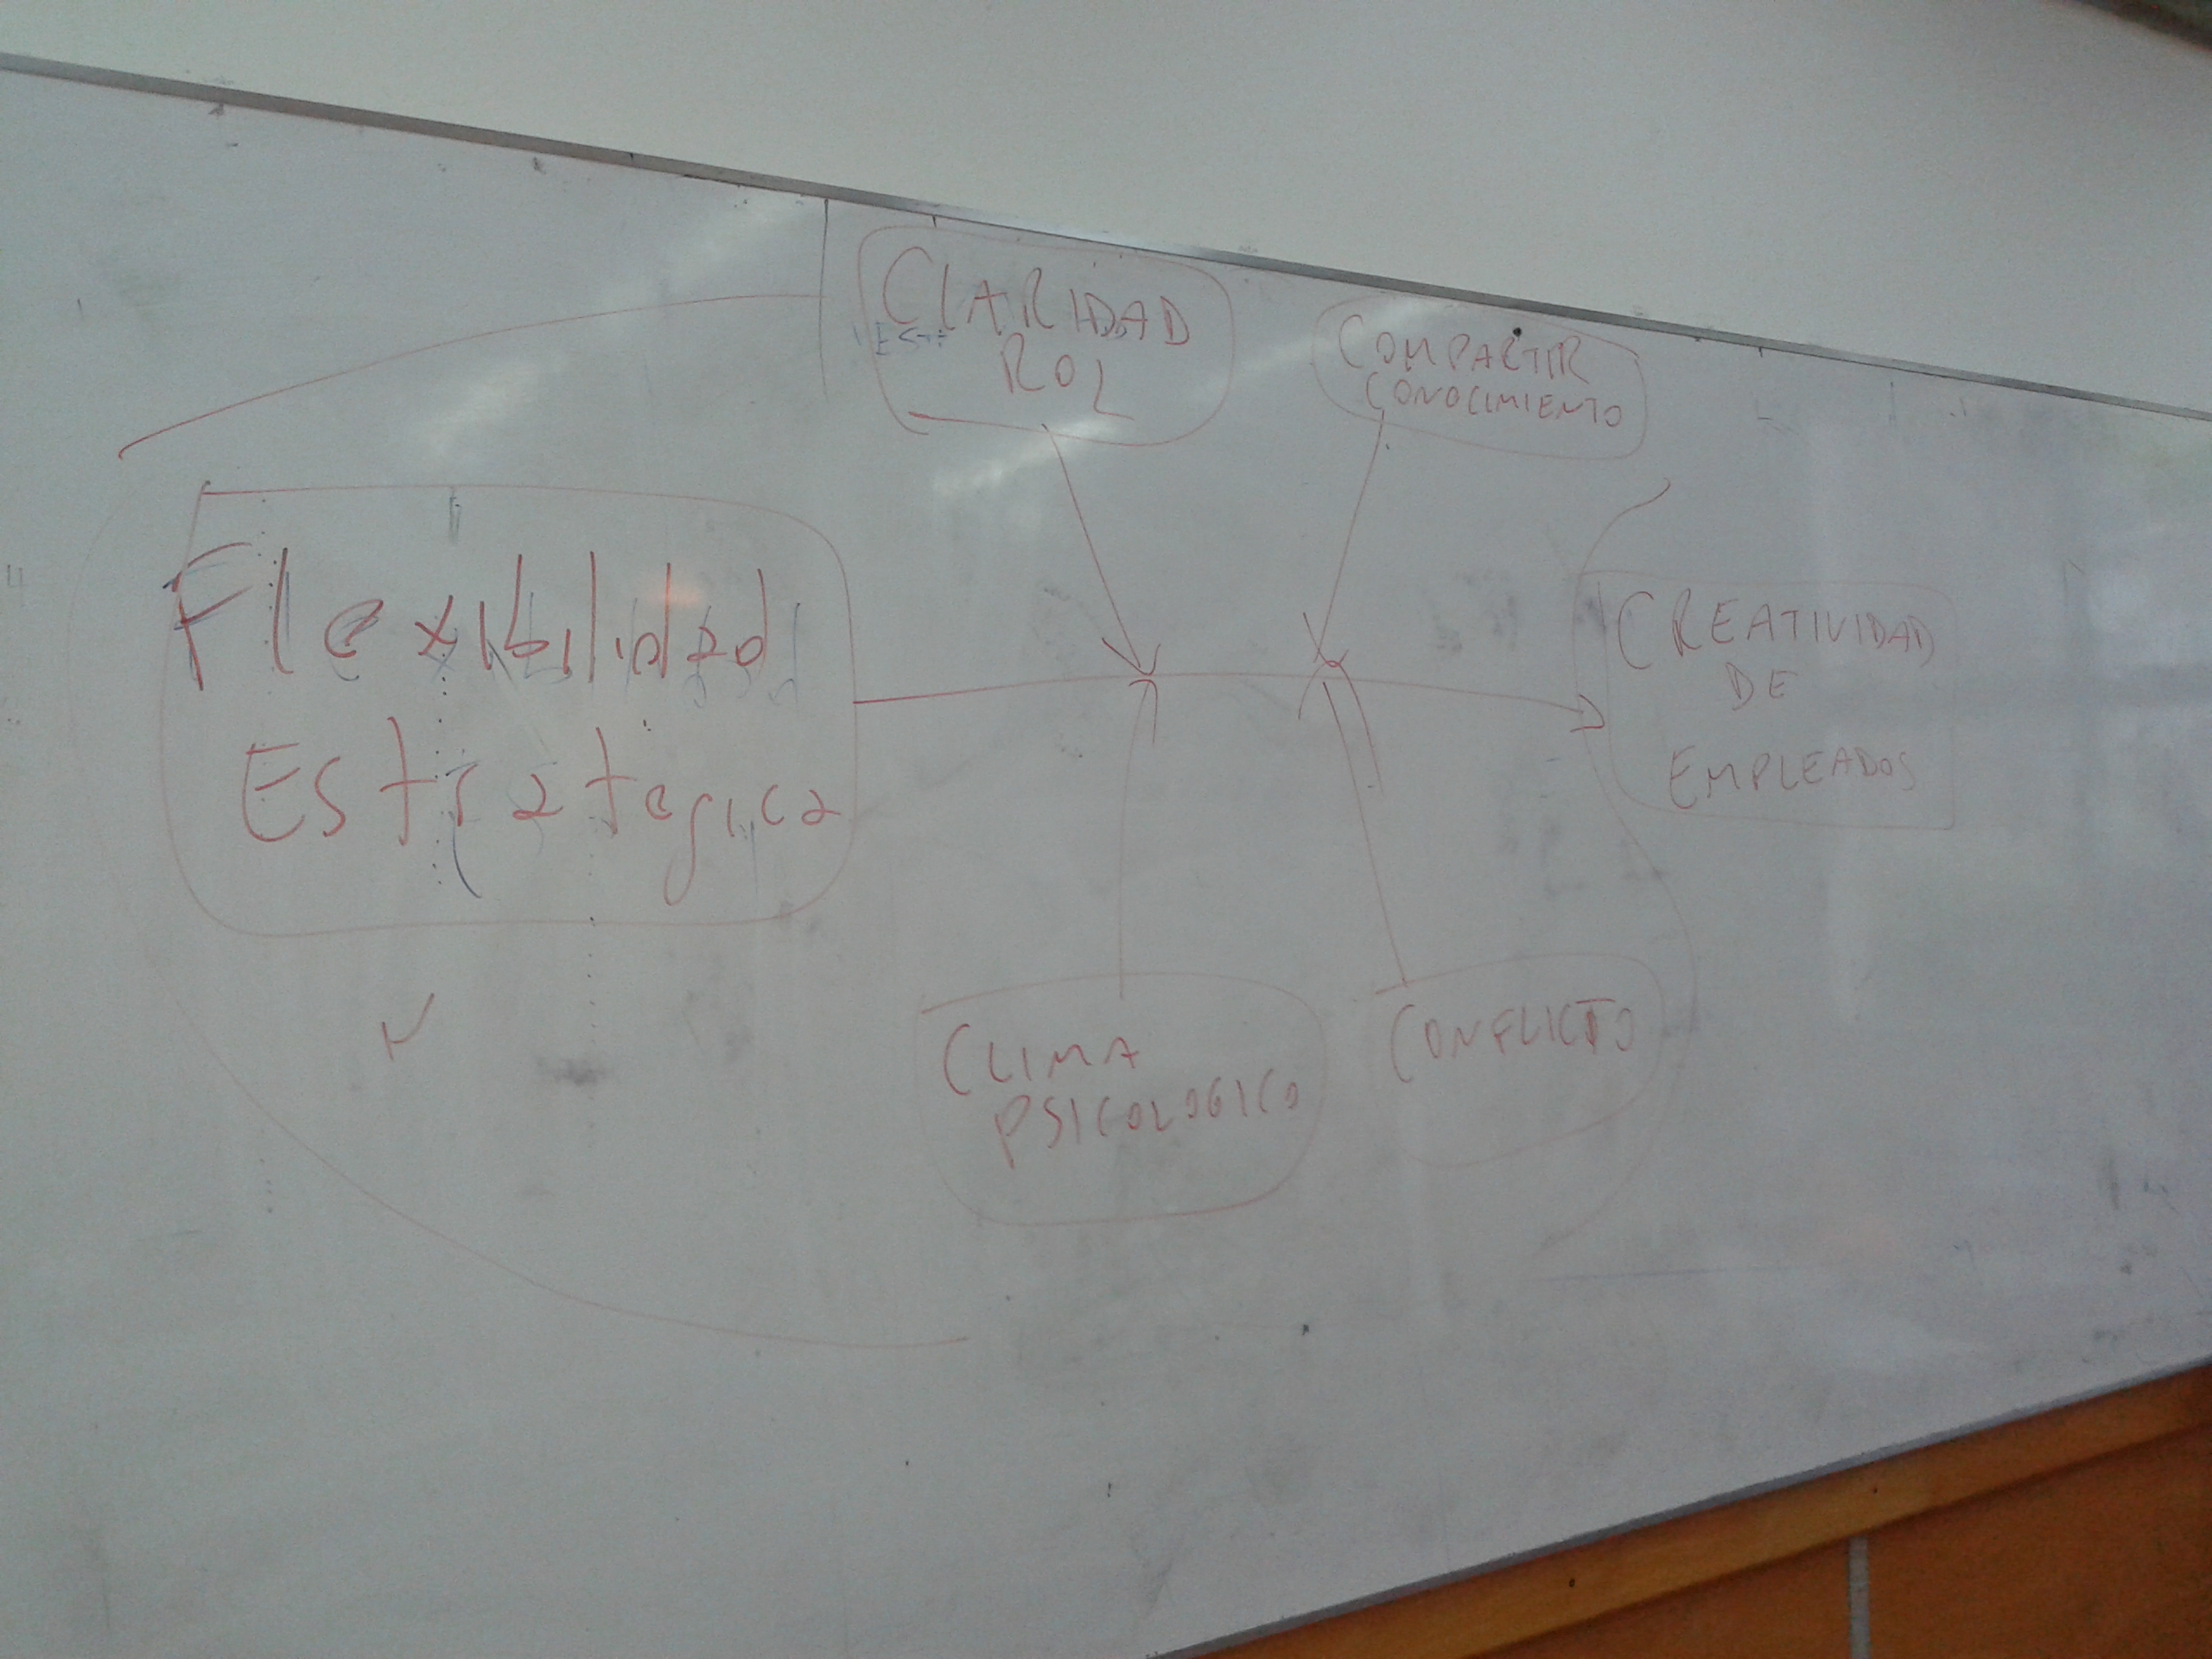 CLARIDAD
ROL
COMPARTIR
CONOCIMIENTO
Flexibilidad
Estrategica
CREATIVIDAD
DE
EMPLEADOS
CLIMA
PSICOLOGICO
CONFLICTO